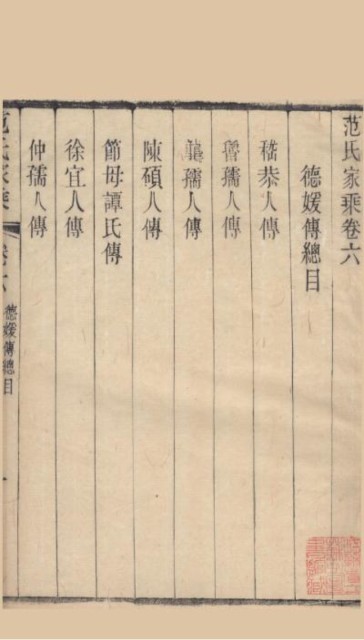 范氏家乘卷六
德媛傳總目
嵇恭人傳
龔孺人傳
陳碩人傳
節母譚氏傳
徐宜人傳
仲孺人傳
范氏家乘 卷六 德媛傳總目 一